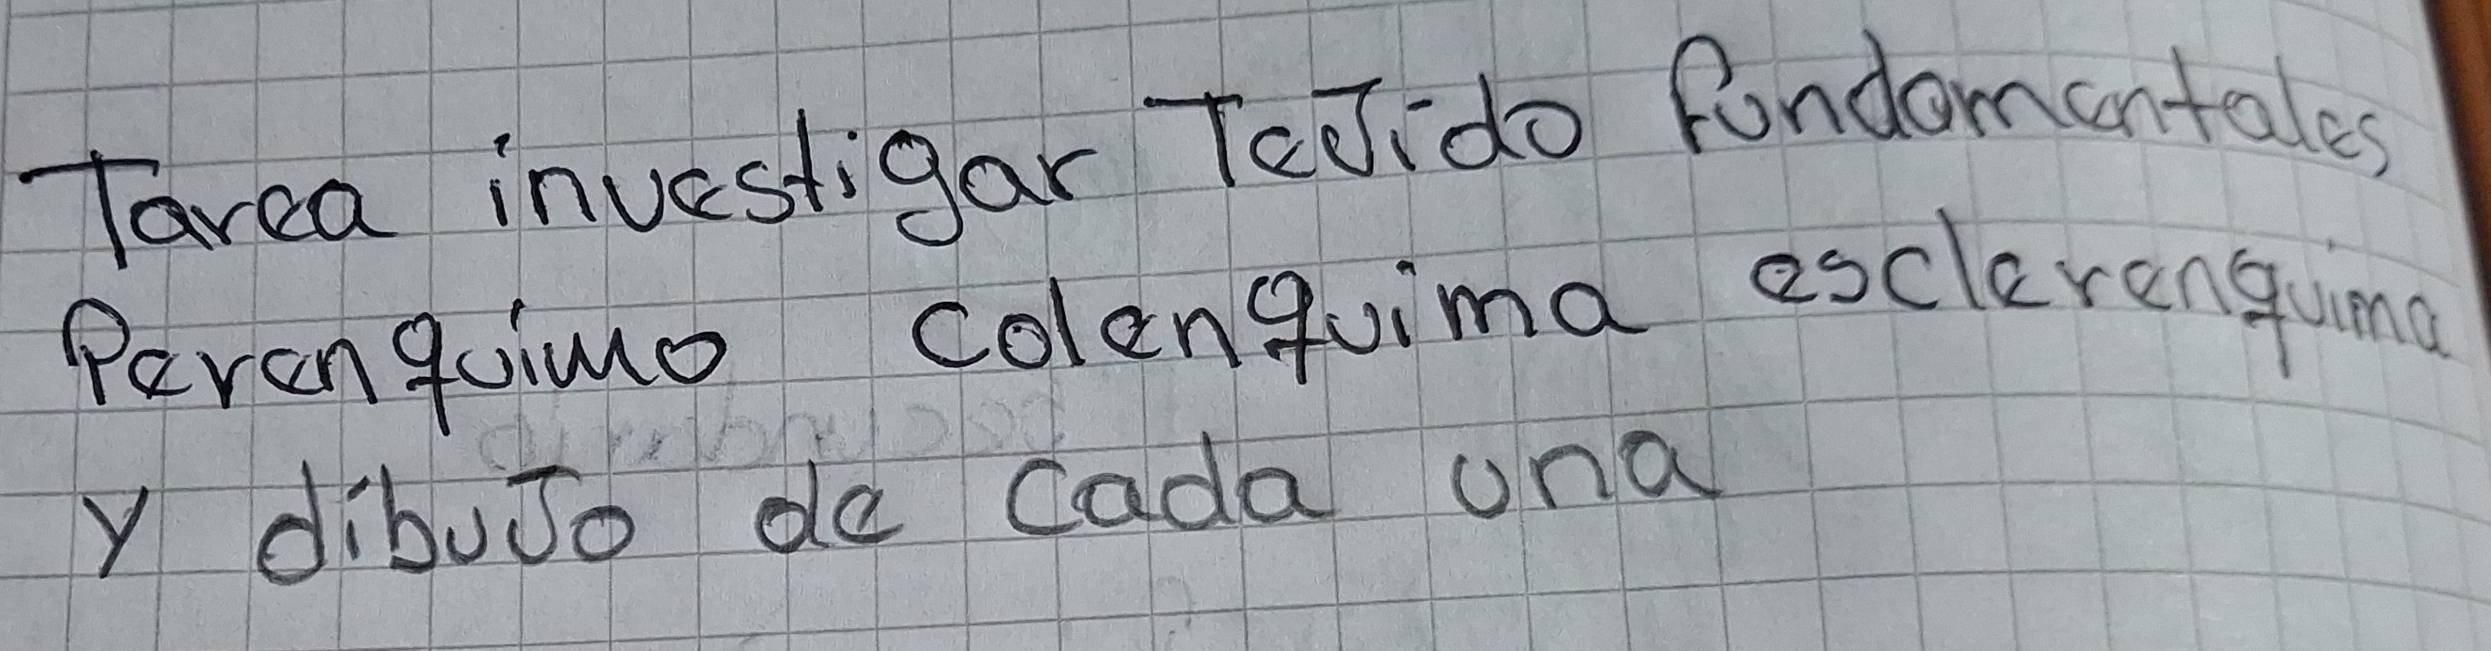 Tarea investigar Tejido fundamentales
Perenquimo colenquima esclerenquima
y dibujo de cada una